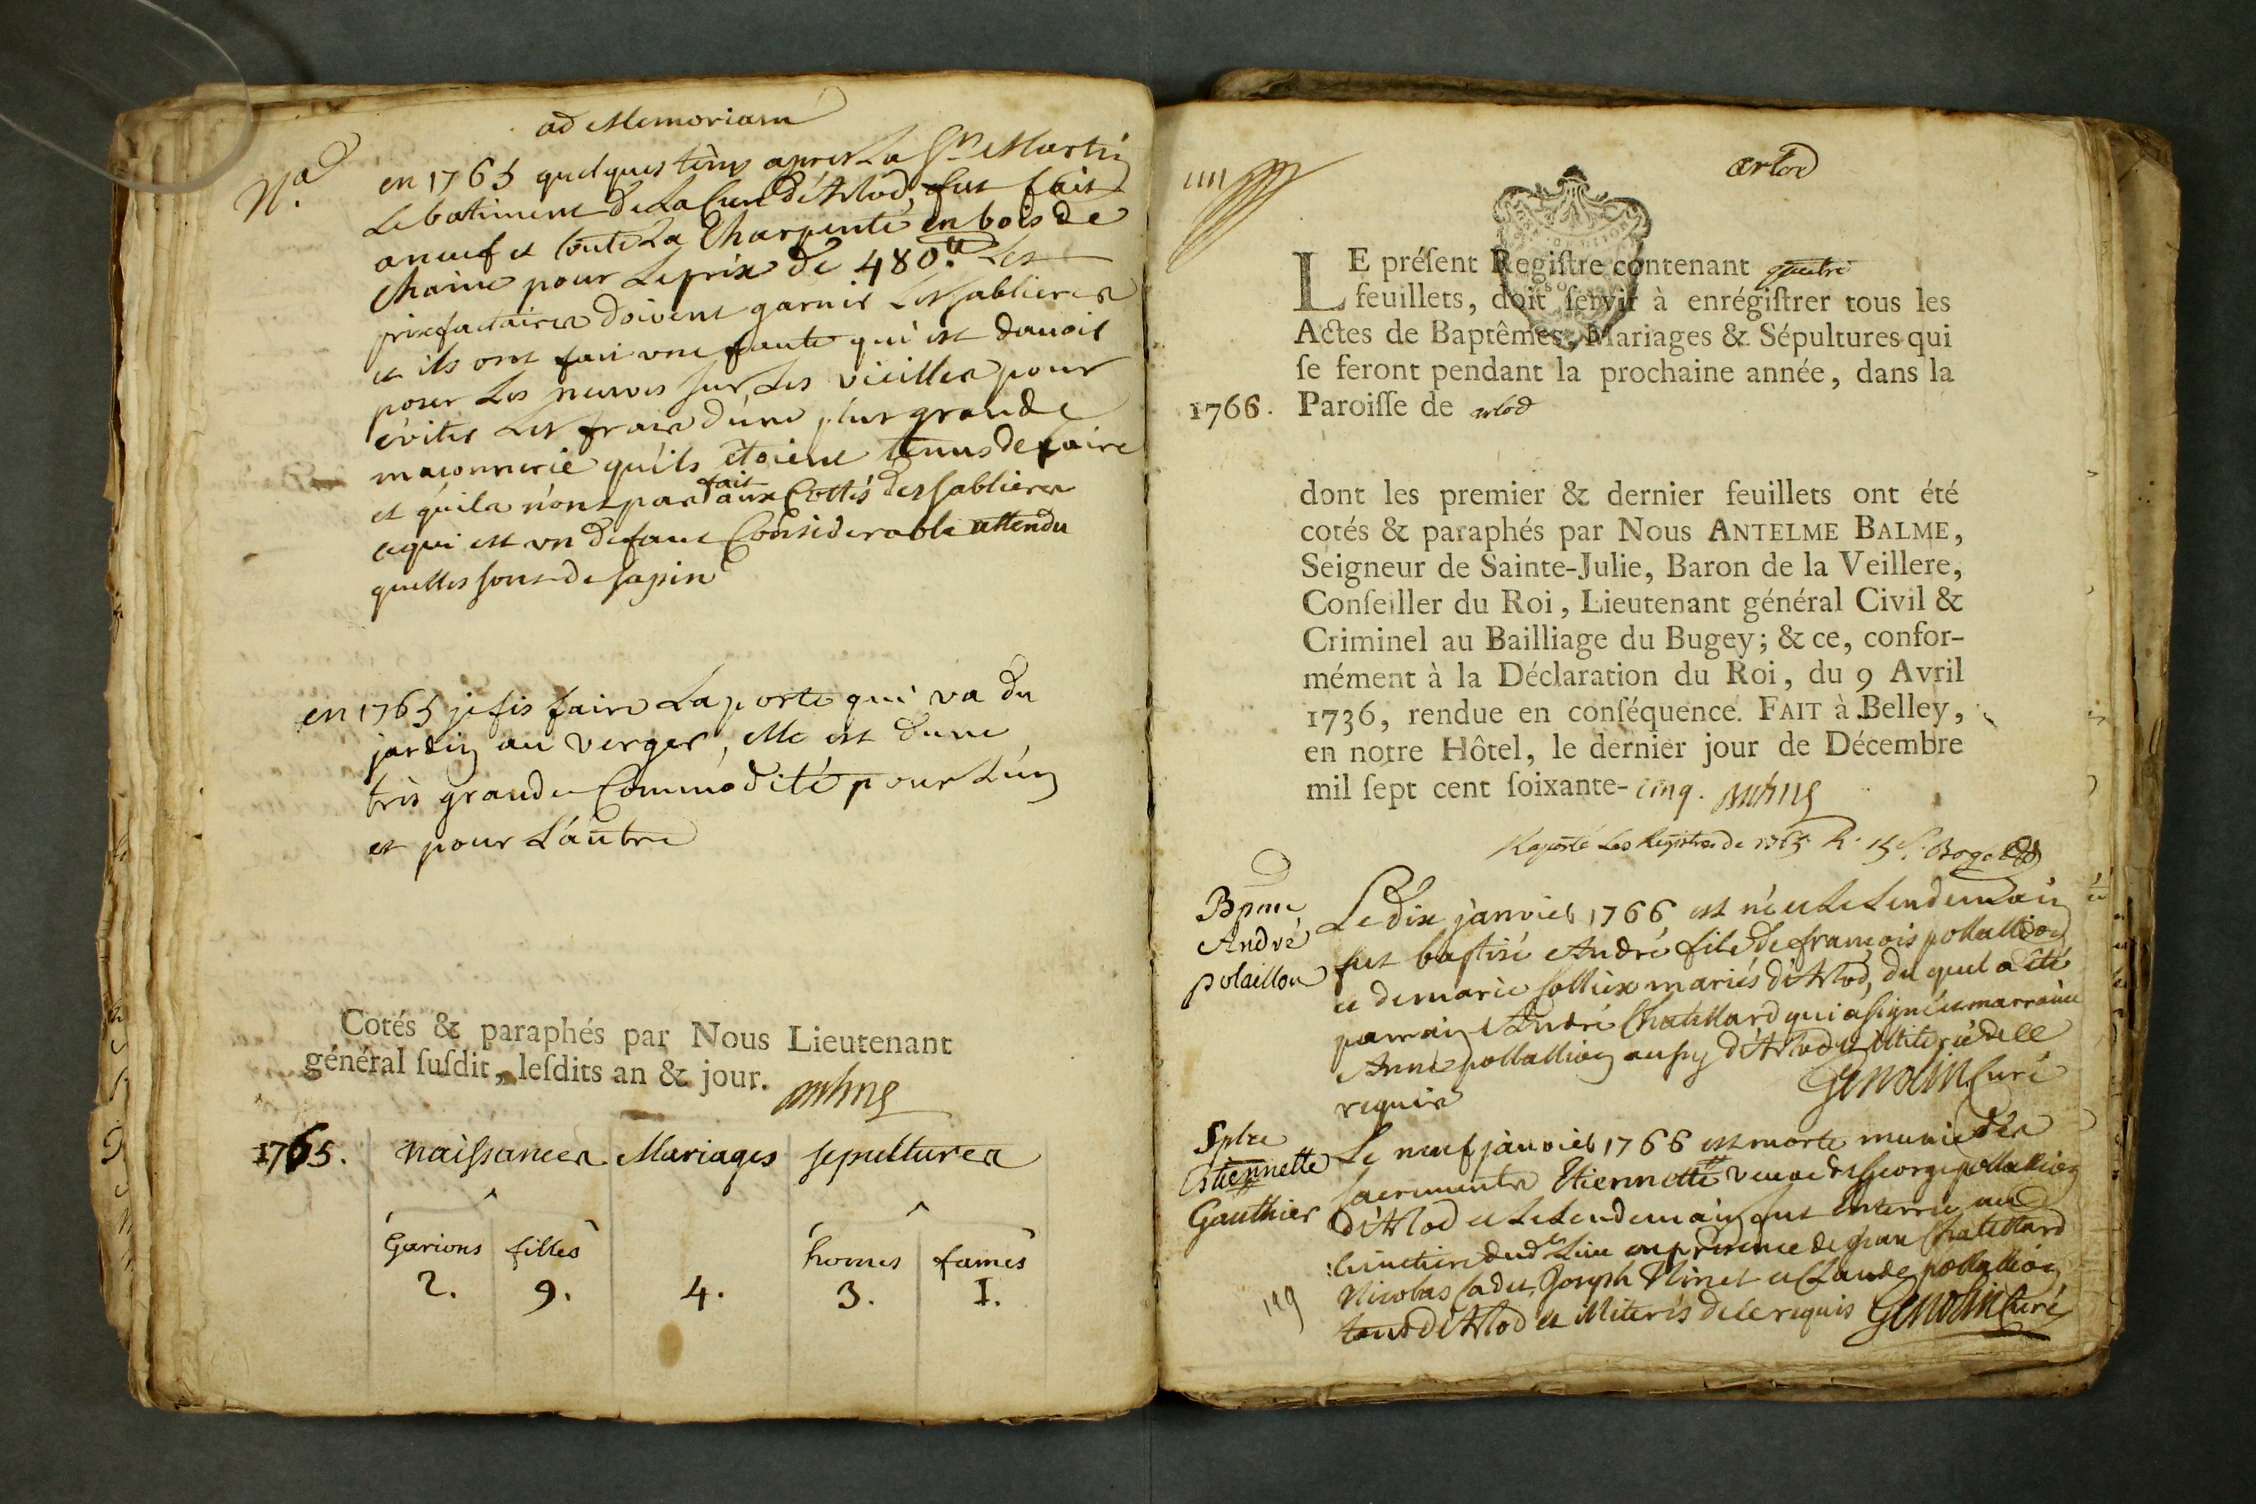 ad Memoriam
Na
en 1765 quelques têms apres La St Martin
Le batiment de La Cure d'Arlod, fut fait
a neuf et toute La Charpente en bois de
chaine pour Le prix de 480.tt Les
prixfactaires doivent garnir Les sablieres
et ils ont fait une faute qui est davoir
poser Les neuves sur Les vieilles pour
éviter Les frais d'une plus grande
maçonnerie qu'ils étoient tenus de faire
fait
et qu'ils n'ont pas aux Cottés des sablieres
ce qui est un defaut Considerable attendu
quelles sont de sapin
en 1765 je fis faire La porte qui va du
jardin au verger, elle est d'une
très grande Commodité pour L'un
et pour L'autre
Cotés & paraphés par Nous Lieutenant
général ſuſdit, leſdits an & jour.
1765. naissances Mariages sepultures
Garions filles homes fames
2. 9. 4. 3. I.
arlod
LE préſent Regiſtre contenant quatre
feuillets, doit ſervir à enrégiſtrer tous les
Actes de Baptêmes, Mariages & Sépultures qui
ſe feront pendant la prochaine année, dans la
1766. Paroiſſe de arlod
dont les premier & dernier feuillets ont été
cotés & paraphés par Nous ANTELME BALME,
Seigneur de Sainte-Julie, Baron de la Veillere,
Conſeiller du Roi, Lieutenant général Civil &
Criminel au Bailliage du Bugey; & ce, confor-
mément à la Déclaration du Roi, du 9 Avril
1736, rendue en conſéquence. FAIT à Belley,
en notre Hôtel, le dernier jour de Décembre
mil ſept cent ſoixante- cinq.
Raporté Les Registres de 1765
Bpme
André
polaillon
Le dix janvier 1766 est né et Le Lendemain
fut baptisé André fils de françois pollallion
et de marie sollieix mariés d'Arlod, du quel a été
parrain André Chatillard qui a signé et marraine
Anne pollallion aussy d'Arlod illiterée de ce
requise Genolin Curé
Splre
Etiennette
Gauthier
Le neuf janvier 1766 est morte munie des
sacrements Etiennette veuve de George pollallion
d'Arlod et Le Lendemain fut enterrée au
cimetiere dud. Lieu en présence de jean Chatillard
Nicolas Joseph Ninet et Claude pollallion
tous d'Arlod et illiterés de ce requis Genolin Curé
119